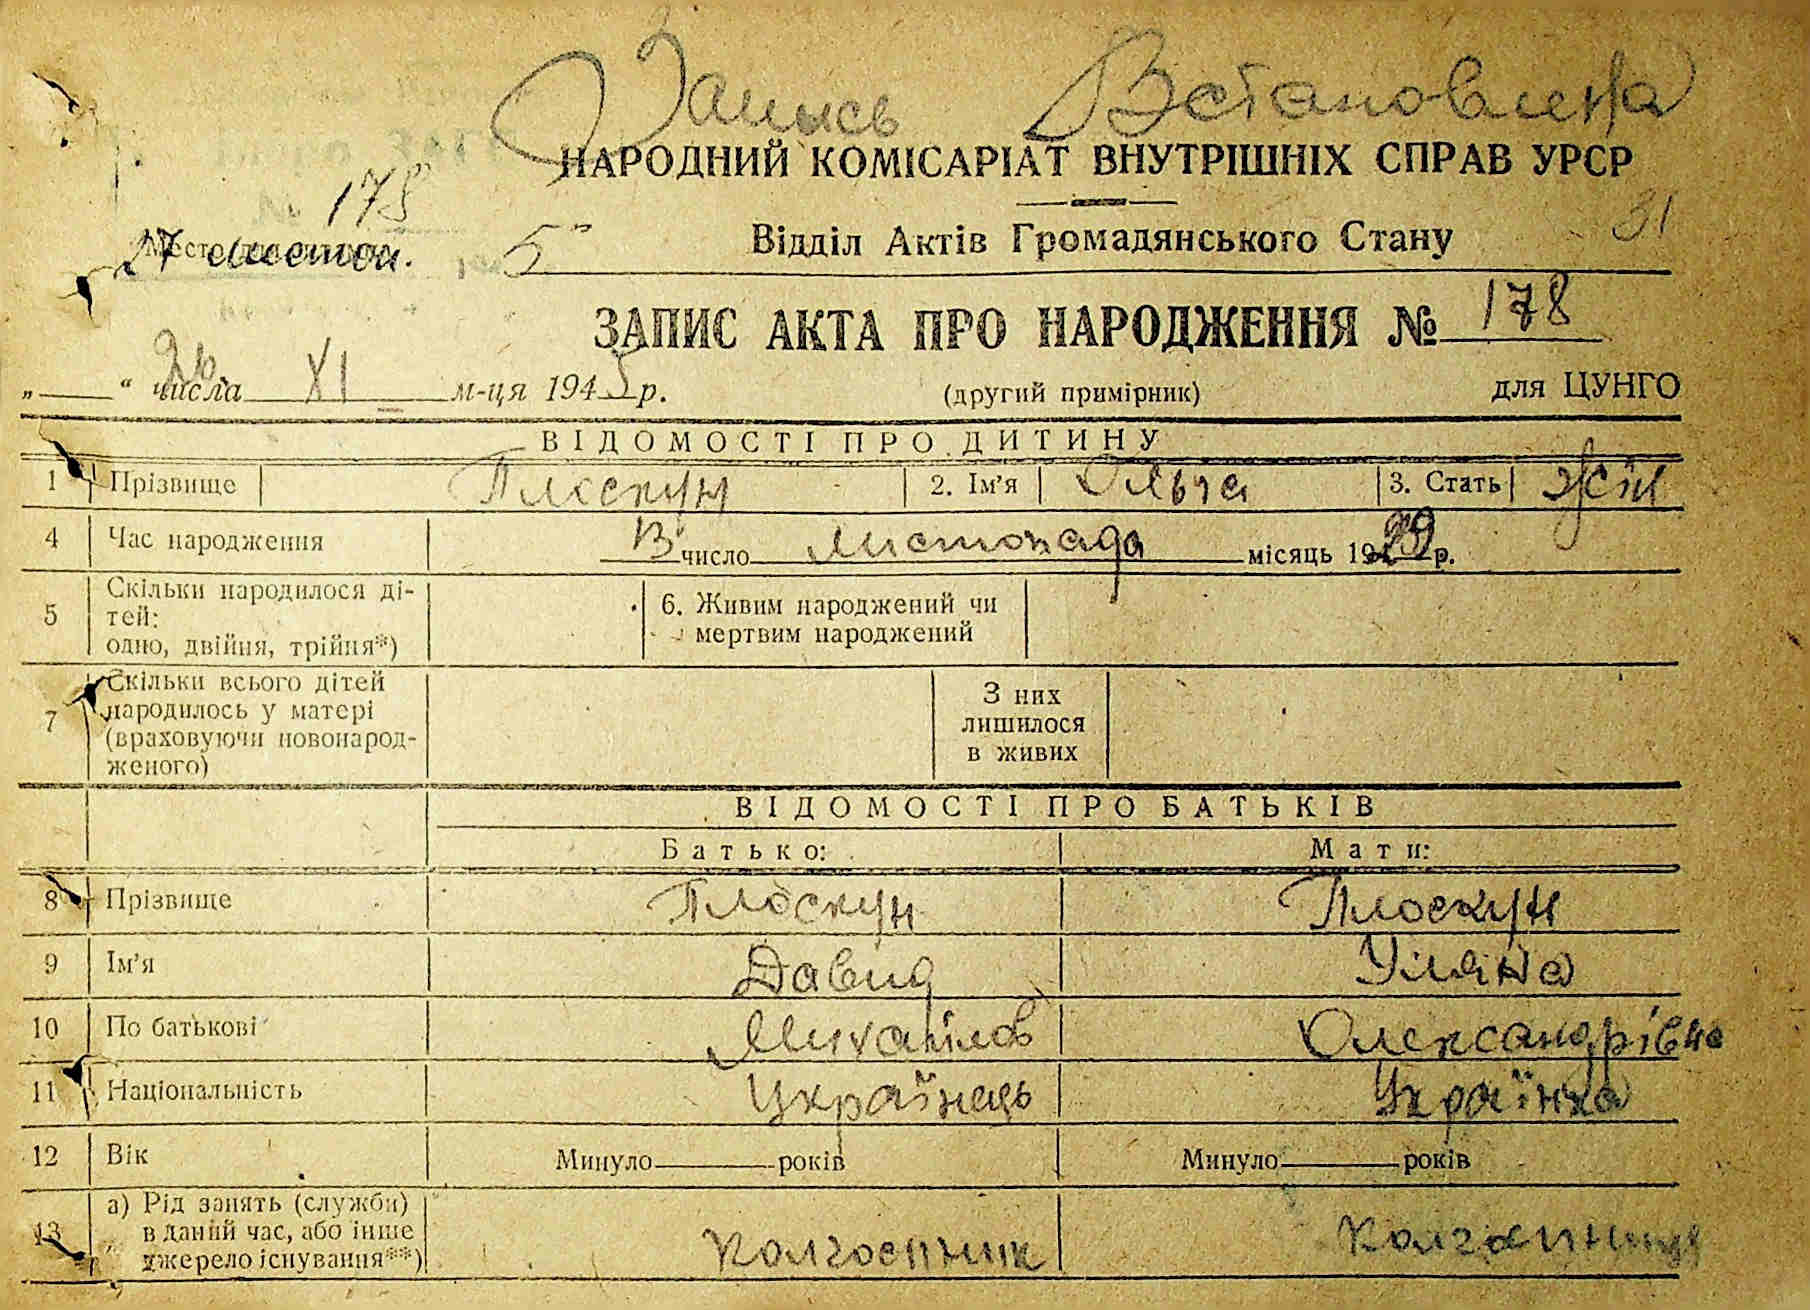 Запись Встановлена
НАРОДНИЙ КОМІСАРІАТ ВНУТРІШНІХ СПРАВ УРСР
178
31
27 листоп. 5
Відділ Актів Громадянського Стану
ЗАПИС АКТА ПРО НАРОДЖЕННЯ № 178
„ “ 26 числа XI м-ця 1945 р. (другий примірник) для ЦУНГО
ВІДОМОСТІ ПРО ДИТИНУ
1 Прізвище Плоскун 2. Ім'я Ольга 3. Стать жін
4 Час народження 13 число листопада місяць 1939 р.
5 Скільки народилося ді-
тей:
одно, двійня, трійня*)
6. Живим народжений чи
мертвим народжений
7 Скільки всього дітей
народилось у матері
(враховуючи новонарод-
женого)
З них
лишилося
в живих
ВІДОМОСТІ ПРО БАТЬКІВ
Батько: Мати:
8 Прізвище Плоскун Плоскун
9 Ім'я Давид Уляна
10 По батькові Михайлов Олександрівна
11 Національність Українець Українка
12 Вік Минуло років Минуло років
13 а) Рід занять (служби)
в даний час, або інше
джерело існування**)
колгоспник колгоспниця